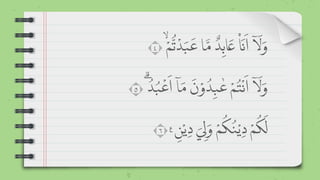 وَلَآ أَنَا۠ عَابِدٌ مَّا عَبَدْتُّمْ ۙ ﴿٤﴾
وَلَآ أَنْتُمْ عٰبِدُوْنَ مَآ أَعْبُدُ ۗ ﴿٥﴾
لَكُمْ دِيْنُكُمْ وَلِيَ دِيْنِ ࣖ ﴿٦﴾